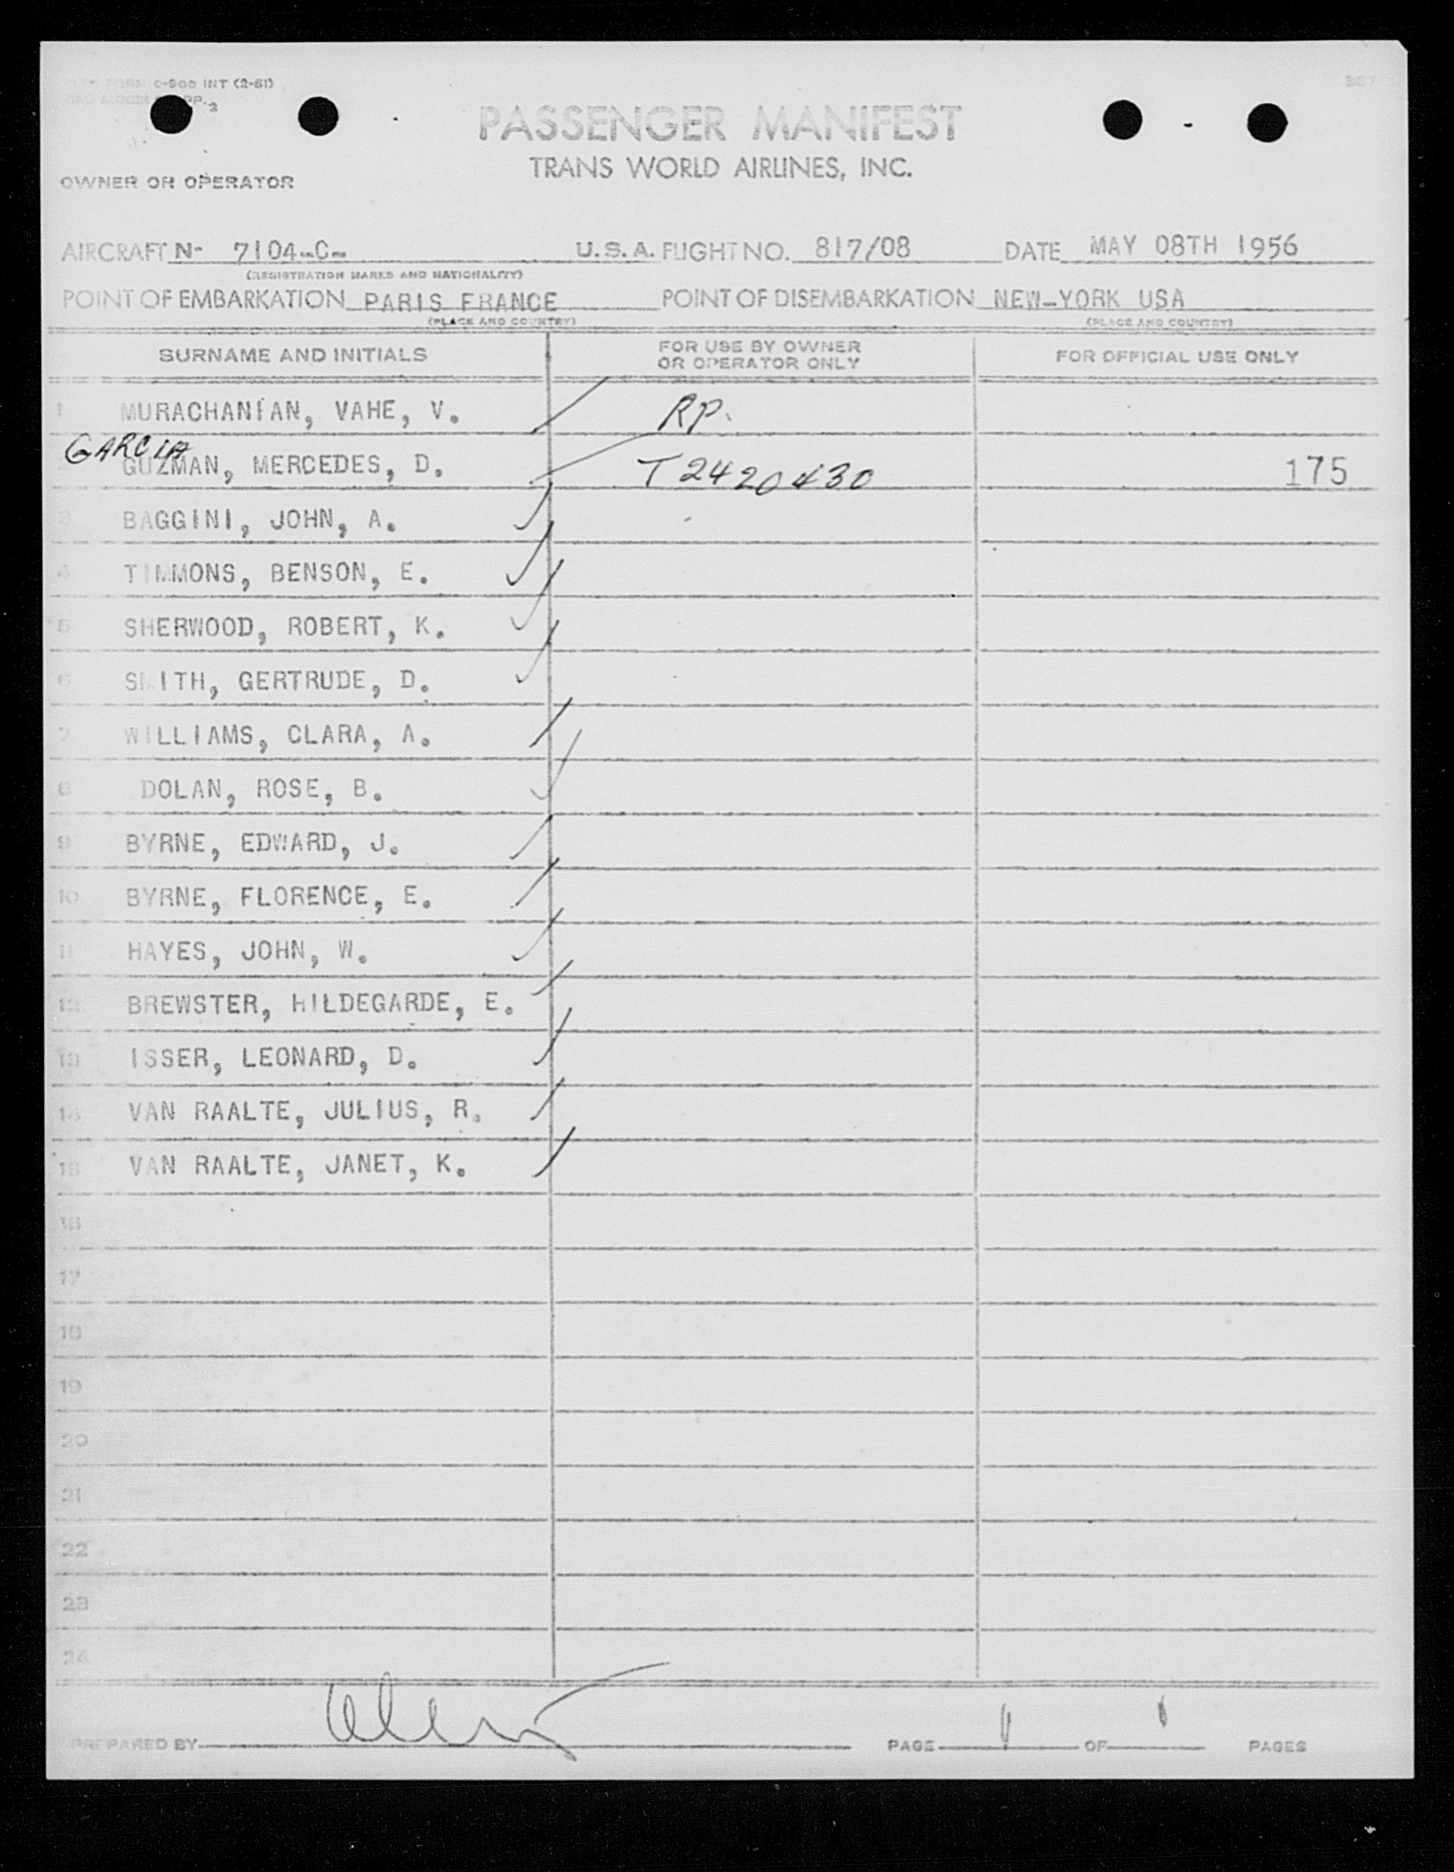 FORM O-900 INT (2-51)
PASSENGER MANIFEST
TRANS WORLD AIRLINES, INC.
OWNER OR OPERATOR
AIRCRAFT N- 7104-C- U.S.A. FLIGHT NO. 817/08 DATE MAY 08TH 1956
(REGISTRATION MARKS AND NATIONALITY)
POINT OF EMBARKATION PARIS FRANCE POINT OF DISEMBARKATION NEW-YORK USA
(PLACE AND COUNTRY) (PLACE AND COUNTRY)
SURNAME AND INITIALS FOR USE BY OWNER OR OPERATOR ONLY FOR OFFICIAL USE ONLY
1 MURACHANIAN, VAHE, V. RP.
GARCIA
2 GUZMAN, MERCEDES, D. T2420430 175
3 BAGGINI, JOHN, A.
4 TIMMONS, BENSON, E.
5 SHERWOOD, ROBERT, K.
6 SMITH, GERTRUDE, D.
7 WILLIAMS, CLARA, A.
8 DOLAN, ROSE, B.
9 BYRNE, EDWARD, J.
10 BYRNE, FLORENCE, E.
11 HAYES, JOHN, W.
12 BREWSTER, HILDEGARDE, E.
13 ISSER, LEONARD, D.
14 VAN RAALTE, JULIUS, R.
15 VAN RAALTE, JANET, K.
16
17
18
19
20
21
22
23
24
PREPARED BY PAGE 1 OF 1 PAGES